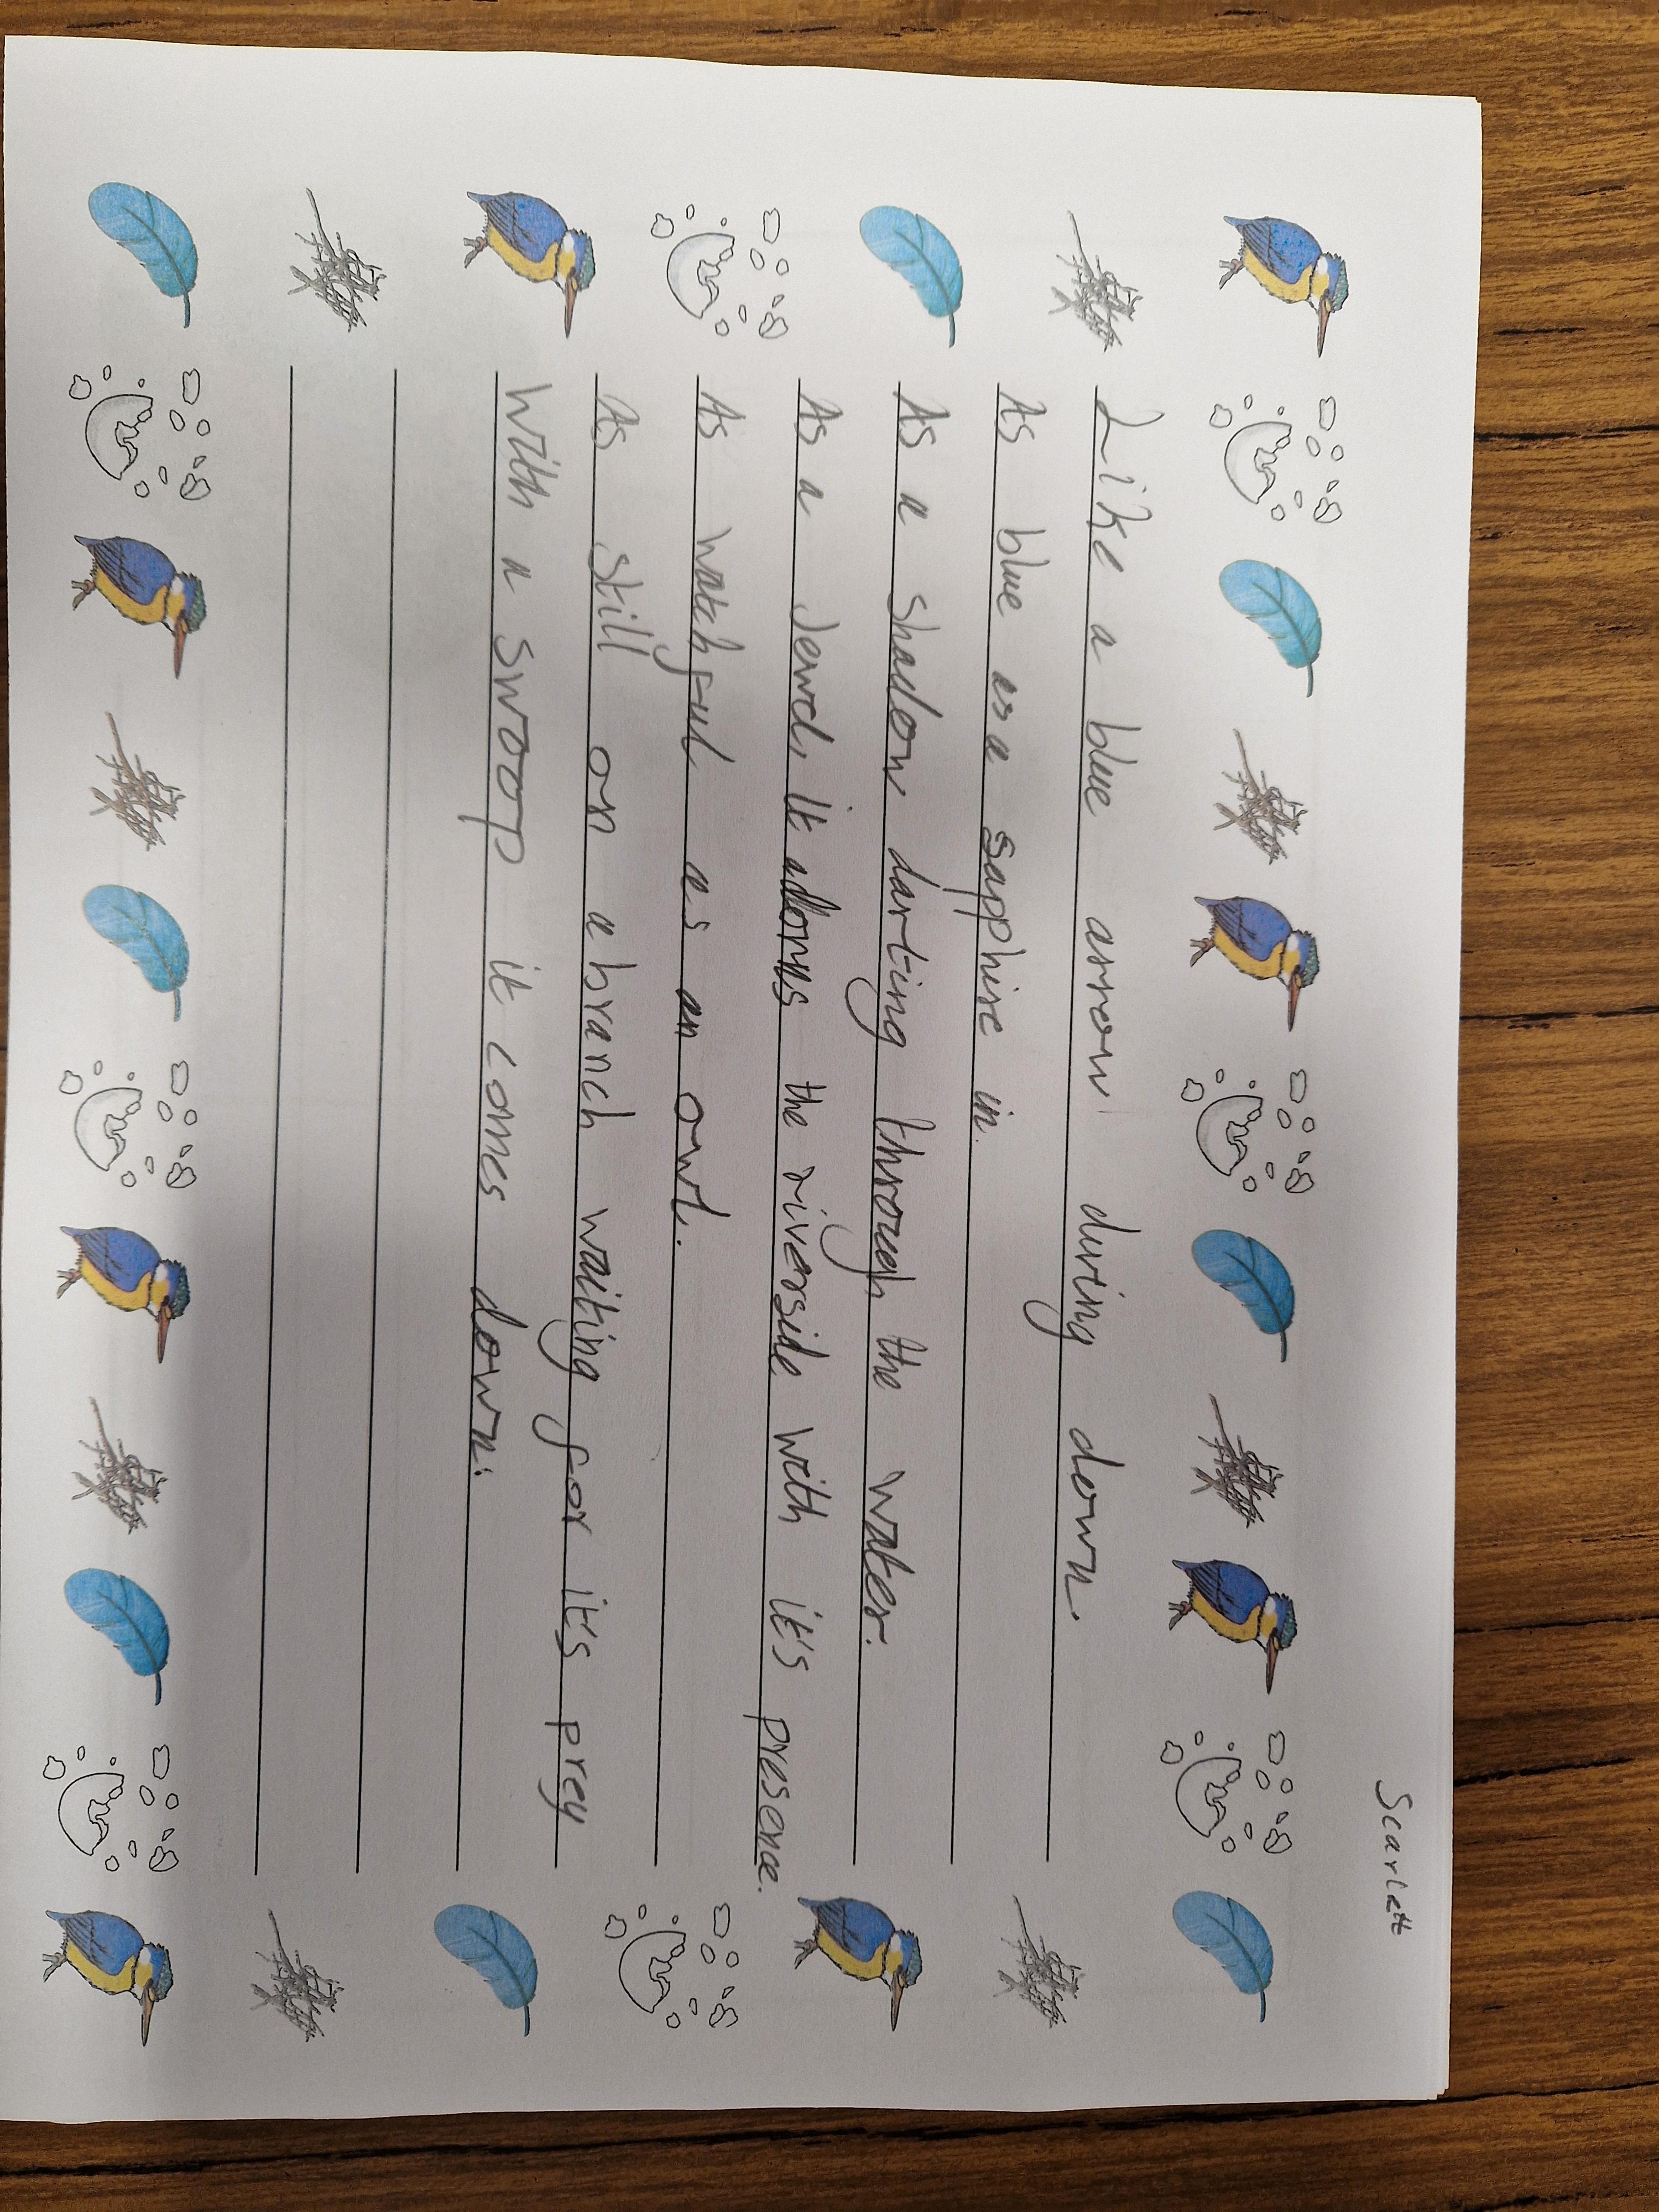 Scarlett
Like a blue arrow diving down.
As blue as a sapphire in.
As a shadow darting through the water.
As a Jewel, it adorns the riverside with it's presence.
As watchful as an owl.
As still on a branch waiting for it's prey
With a swoop it comes down.